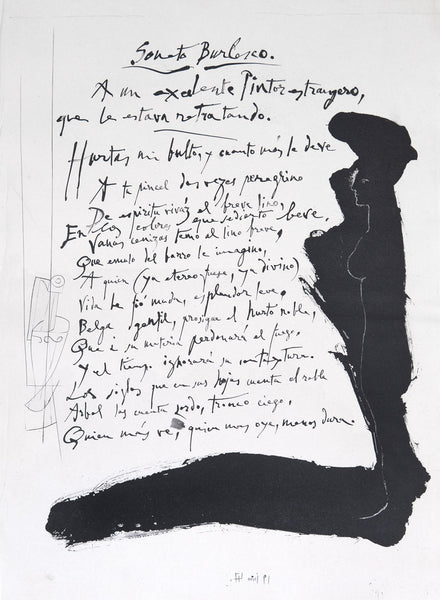 Soneto Burlesco.
A un excelente Pintor estrangero,
que le estava retratando.
Hurtas mi bulto, y cuanto más le deve
A tu pincel dos vezes peregrino
De espiritu vivaz el breve lino,
En los colores que sediento beve,
Vanas cenizas temo al lino breve,
Que emulo del barro le imagino,
A quien (ya etereo fuese, ya divino)
Vida le fió muda, esplendor leve,
Belga gentil, prosigue el hurto noble,
Que a su materia perdonará el fuego,
Y el tiempo ignorará su contextura.
Los siglos que en sus hojas cuenta el roble
Arbol los cuenta sordo, tronco ciego,
Quien más ve, quien mas oye, menos dura.